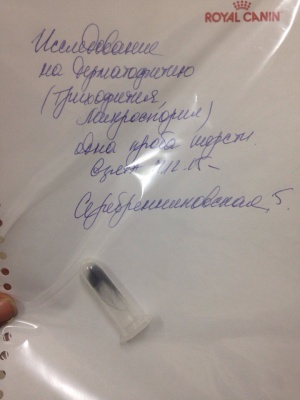 ROYAL CANIN
Исследование
на дерматофитию
(Трихофития,
Микроспория)
одна проба шерсти
Серебренниковская 5.